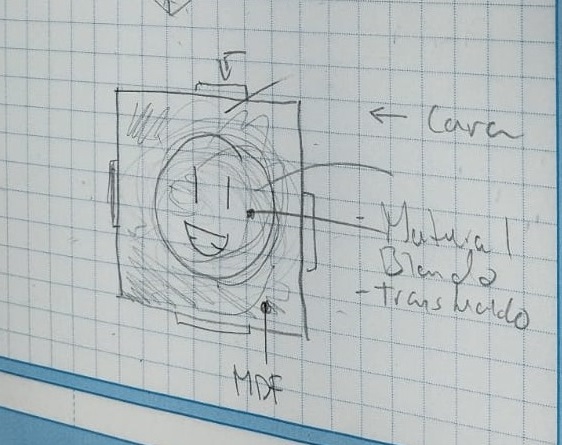 ← Cara
- Material
Blando
- translucido
MDF